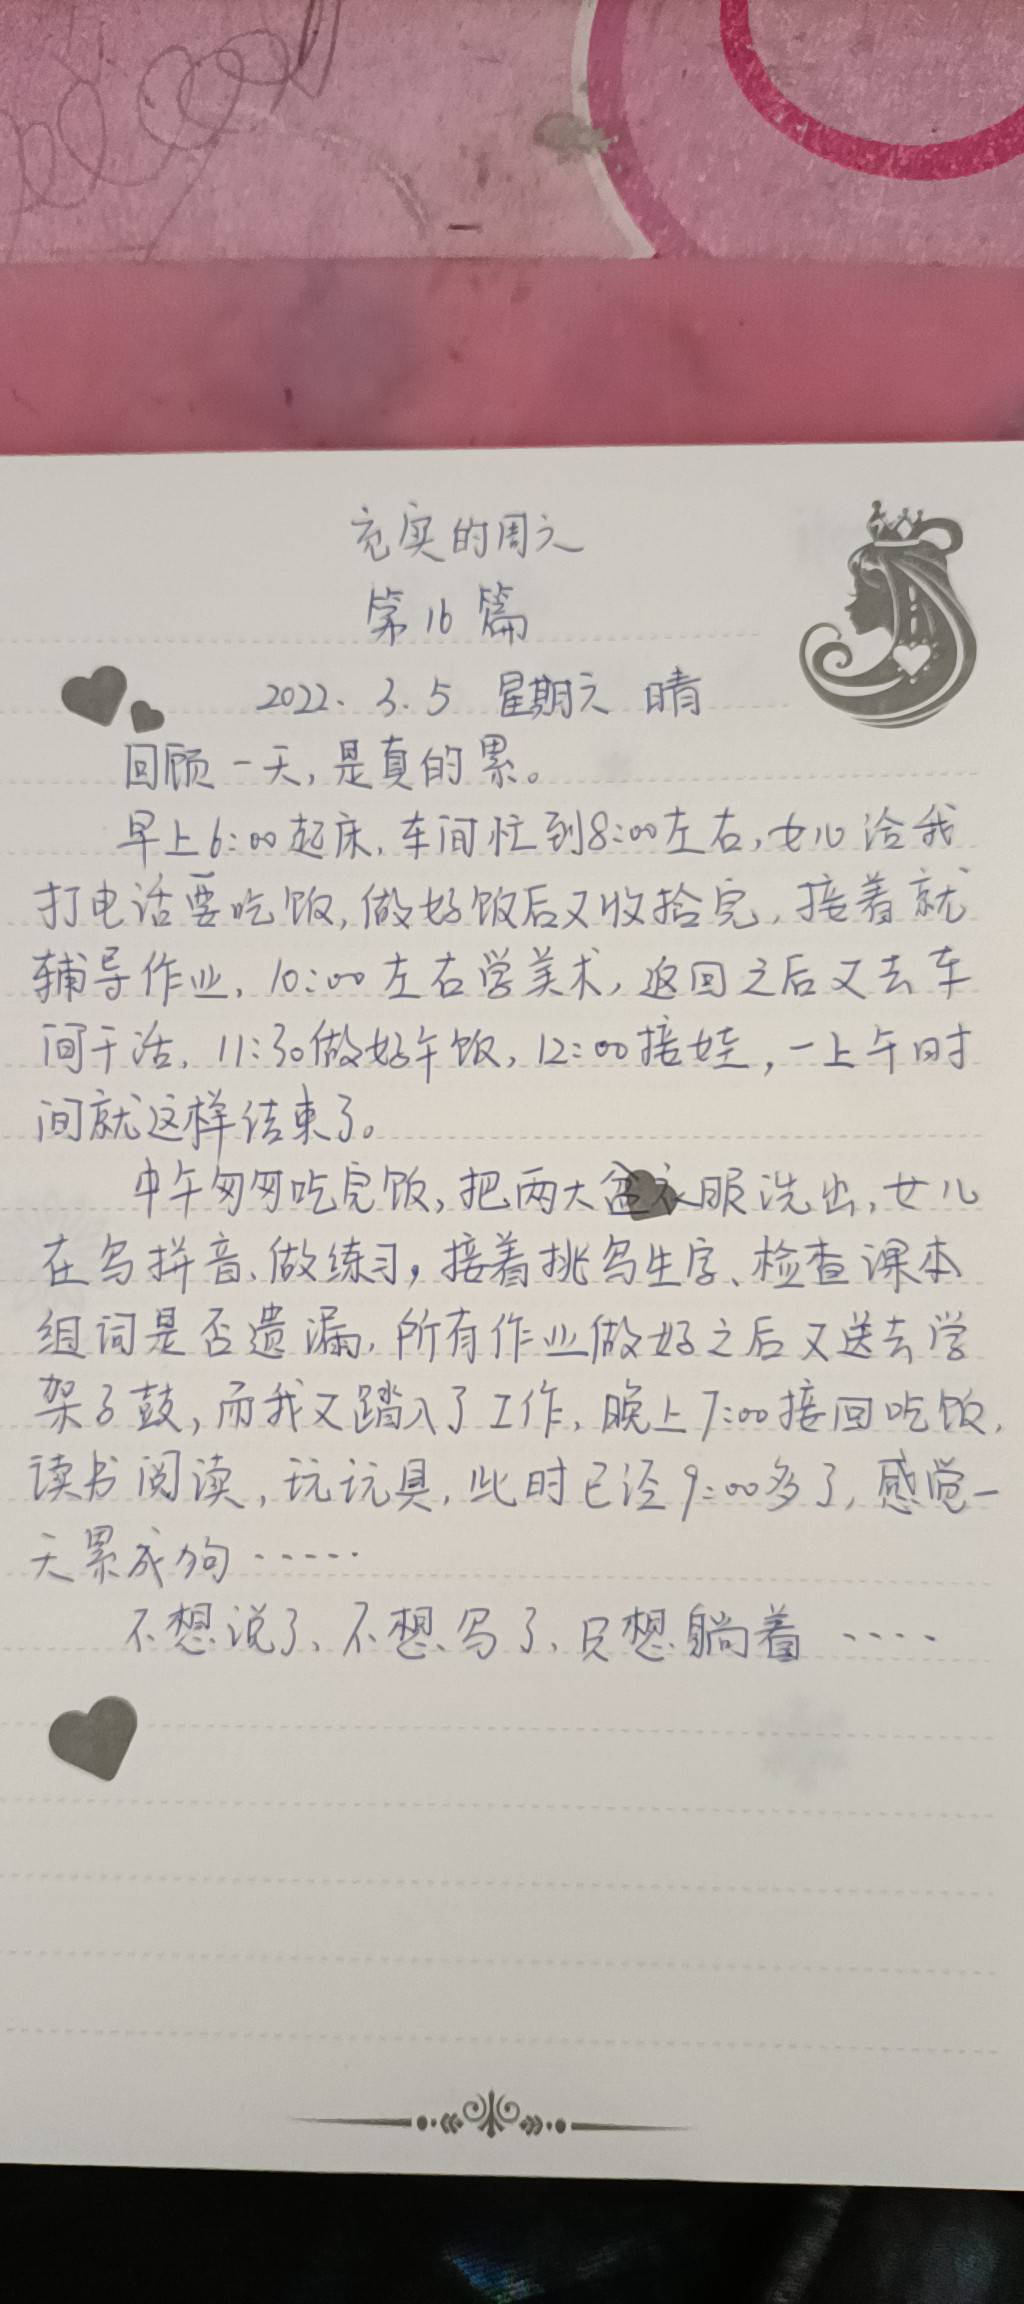 充实的周六
第16篇
2022.3.5 星期六 晴
回顾一天,是真的累。
早上6:00起床,车间忙到8:00左右,女儿给我
打电话要吃饭,做好饭后又收拾完,接着就
辅导作业,10:00左右学美术,返回之后又去车
间干活,11:30做好午饭,12:00接娃,一上午时
间就这样结束了。
中午匆匆吃完饭,把两大盆衣服洗出,女儿
在写拼音、做练习,接着挑写生字、检查课本
组词是否遗漏,所有作业做好之后又送去学
架子鼓,而我又踏入了工作,晚上7:00接回吃饭,
读书阅读,玩玩具,此时已经9:00多了,感觉一
天累成狗……
不想说了、不想写了、只想躺着……